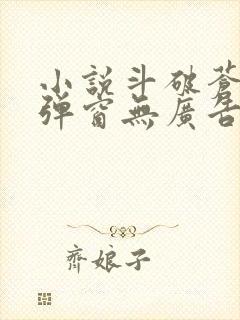 小說斗破蒼
彈窗無廣告
齊娘子